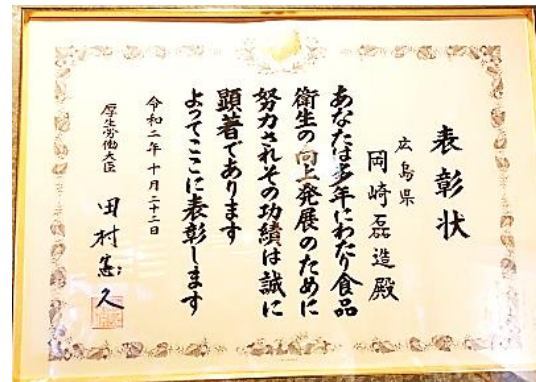 表彰状
広島県
岡崎磊造殿
あなたは多年にわたり食品
衛生の向上発展のために
努力されその功績は誠に
顕著であります
よってここに表彰します
令和二年十月二十二日
厚生労働大臣 田村憲久